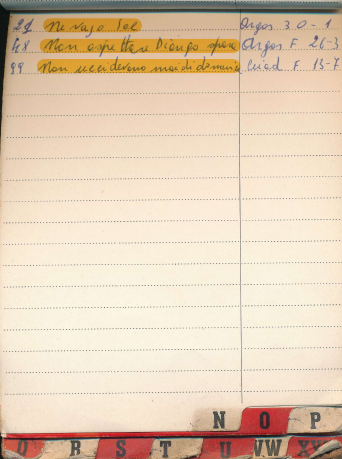 29 Nevajo Joe Argos 3 0-1
48 Non aspettare Django spara Argos F 26-3
99 Non uccidevano mai di domenica Ciad F 13-7
N O P
Q R S T U VW XY